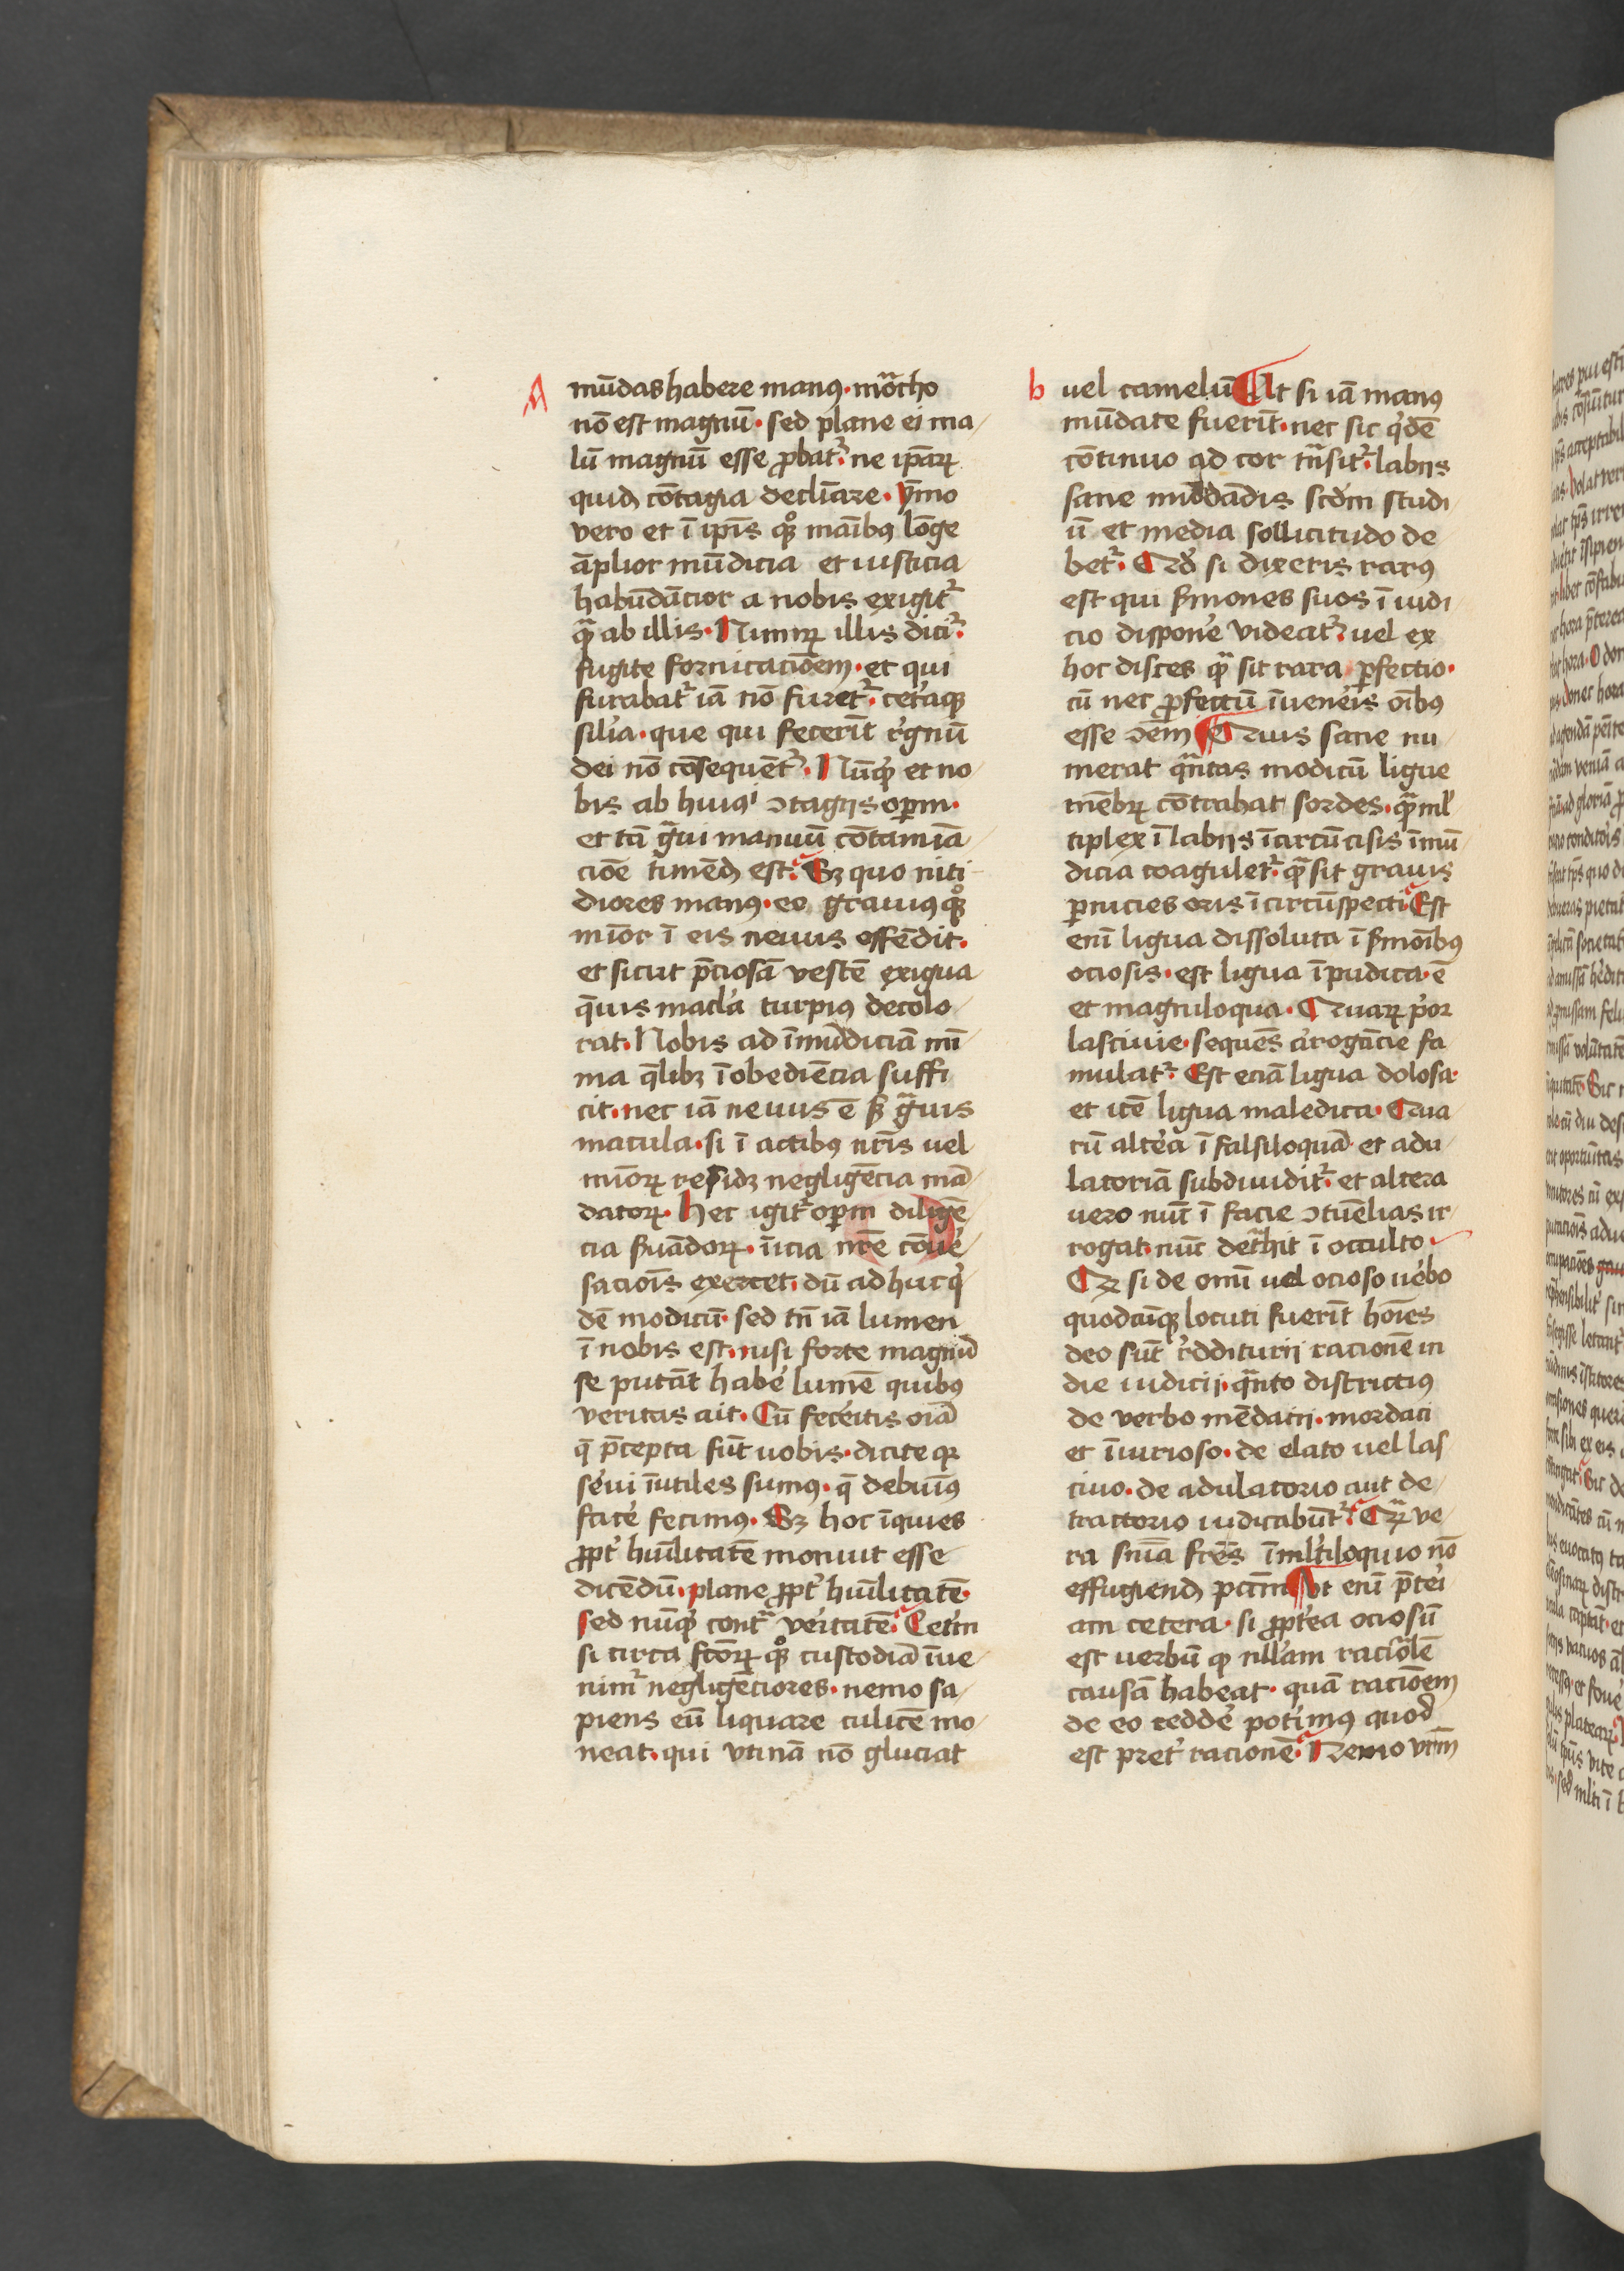 A
mūdas habere manꝰ · moͣcho
nō est magnū · sed plane ei ma
lū magnū esse ꝓbat᷑ · ne ip̄aꝝ
quid cōtagia declīare · ẏmo
vero et ī ip̄is qͦꝫ māibꝰ lōge
āplior mūdicia et iusticia
habūdācior a nobis exigit᷑
qͣ ab illis · Nimiꝝ illis dicit᷑ ·
fugite fornicacōem · et qui
furabat᷑ iā nō furet᷑ · cet̓aqꝫ
sil̓ia · que qui fecerīt r̓gnū
dei nō cōsequēt᷑ · Nūqͥd et no
bis ab huiꝰ ꝯtagiis oꝑm ·
et tā gͣui manuū cōtamīa
cōe timēd̄ est · Sꝫ quo niti
diores manꝰ · eo grauiꝰ qͦꝫ
mīor ī eis neuus offēdit ·
et sicut p̄ciosā vestē exigua
q̄uis macl̓a turpiꝰ decolo
rat · Nobis ad īmūdiciā mī
ma q̄libꝫ īobediēcia suffi
cit · nec iā neuus ē sꝫ gͣuis
macula · si ī actibꝰ nr̄is uel
mīoꝝ residꝫ negligēcia mā
datoꝝ · Hec igit᷑ oꝑm diligē
cia ẜuādoꝝ · īicia nr̄e cōue᷑
sacōis exercet · dū adhuc qͥ
dē modicū · sed tn̄ iā lumen
ī nobis est · nisi forte magnū
se putāt habe᷑ lumē quibꝰ
veritas ait · Cū fecͥitis oīa
q̄ p̄cepta sūt uobis · dicite qꝛ
se᷑ui īutiles sumꝰ · q̄ debuīꝰ
face᷑ fecimꝰ · Sꝫ hoc īquies
ꝓpt᷑ hūilitatē monuit esse
dicēdū · plane ꝓpt᷑ hūilitatē ·
sed nūqͥd contͣ ve᷑itatē · Cetim
si circa sctōꝝ qͦꝫ custodiā īue
nimͬ negligēciores · nemo sa
piens eū liquare culicē mo
neat · qui vtinā nō gluciat
b
uel camelū At si iā manꝰ
mūdate fuerīt · nec sic qͥdē
cōtinuo ad cor tn̄sit᷑ · labiis
sane mūdādis scd̄m studi
ū et media sollicitudo de
bet᷑ · Qd̓ si dixeris rarꝰ
est qui ẜmones suos ī iudi
cio dispone᷑ videat᷑ · uel ex
hoc disces qͣ sit rara ꝑfectio ·
cū nec ꝓfectū īuene᷑is oībꝰ
esse ꝯēm Quis sane nu
merat qͣntas modicū ligue
mēbꝝ cōtrahat sordes · qͣ ml̓
tiplex ī labiis īcircūcisis īmū
dicia coagulet᷑ · qͣ sit grauis
ꝑnicies oris īcircūspecti · Est
enī ligua dissoluta ī ẜmoībꝰ
ociosis · est ligua īpudica · ē
et magniloqua · Quaꝝ pͥor
lasciuie · sequēs a᷑rogācie fa
mulat᷑ · Est eciā ligua dolosa ·
et itē ligua maledica · Qua
rū alte᷑a ī falsiloquā et adu
latoriā subdiuidit᷑ · et altera
uero nūc ī facie ꝯtūelias ir
rogat · nūc detͣhit ī occulto ·
Qꝛ si de omī uel ocioso ue᷑bo
quodcūqꝫ locuti fuerīt hoīes
deo sūt r̓ddituri racionē in
die iudicii · qͣnto districtiꝰ
de verbo mēdacii · mordaci
et īiurioso · de elato uel las
ciuo · de adulatorio aut de
tractorio iudicabūt᷑ · Qͣꝫ ve
ra sn̄ia frēs īml̓tiloquio nō
effugiend̄ pctm̄ Vt enī p̄te᷑i
am cetera · si ꝓpt᷑ea ociosū
est uerbū qͥ nullam racōlē
causā habeat · quā racōem
de eo redde᷑ potimꝰ quod
est pret᷑ racionē · Nemo vr̄m